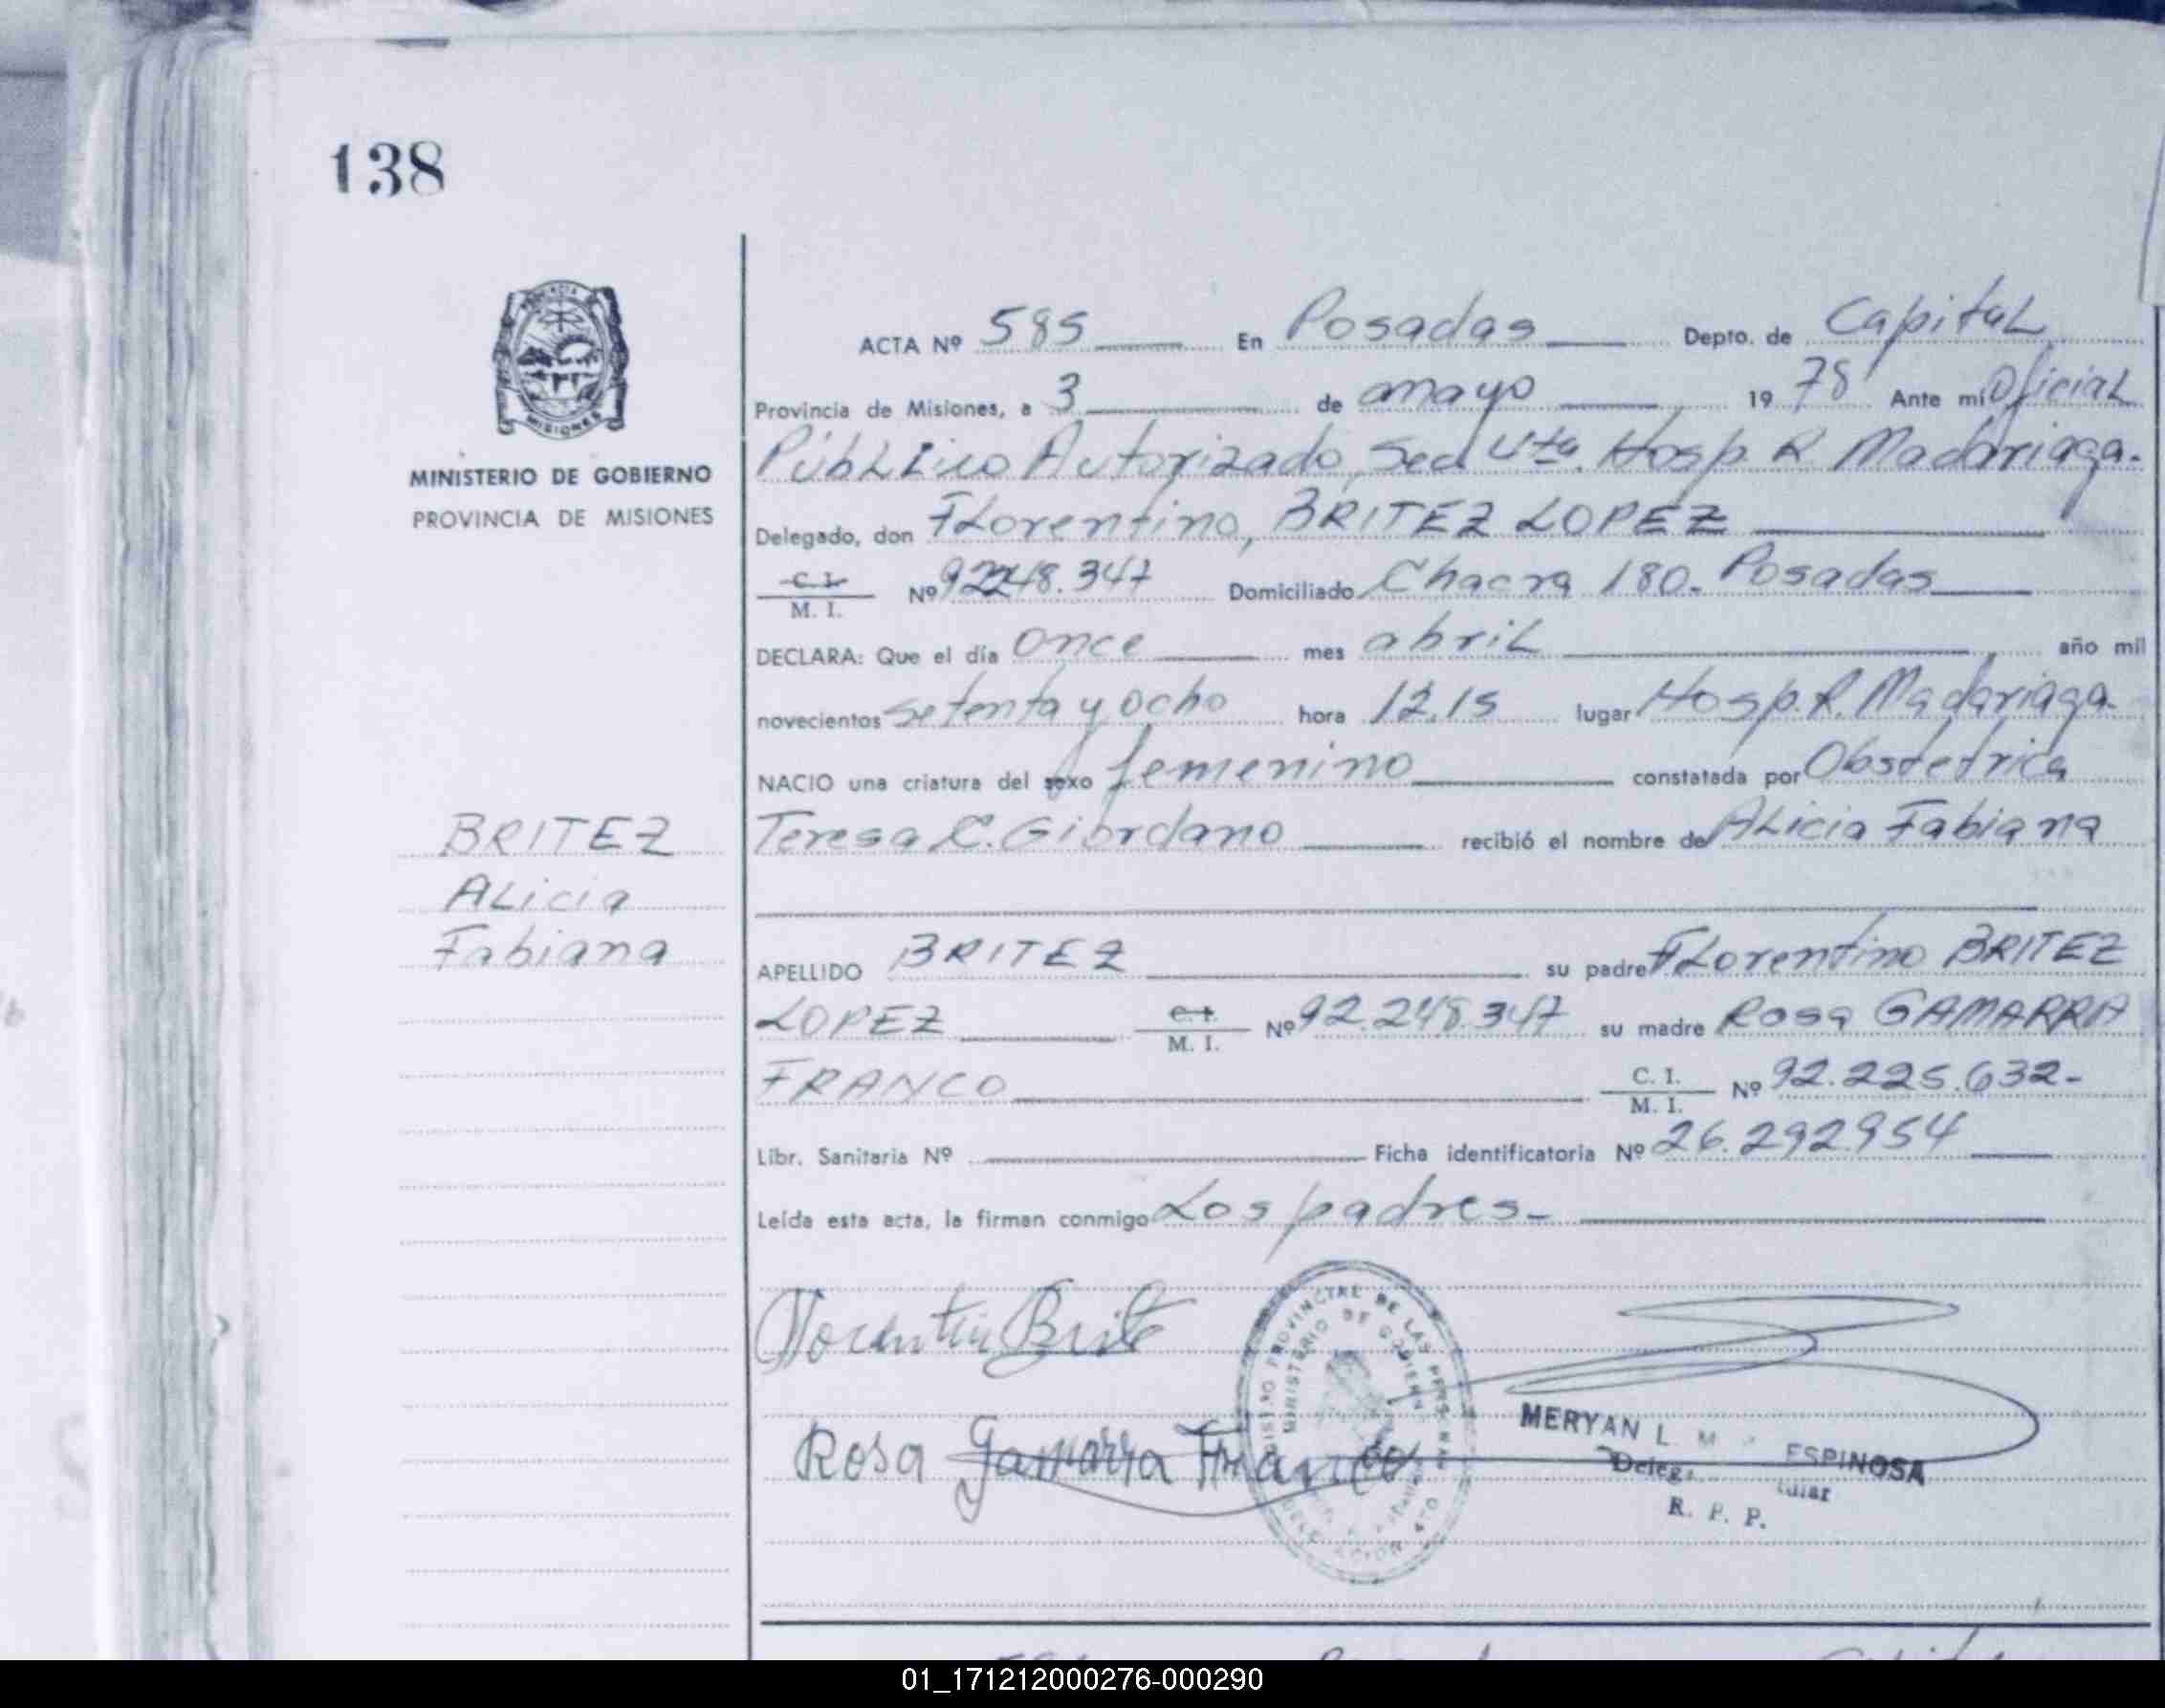 138
PROVINCIA DE
MISIONES
MINISTERIO DE GOBIERNO
PROVINCIA DE MISIONES
BRITEZ
ALicia
Fabiana
ACTA Nº 585 En Posadas Depto. de CapitaL
Provincia de Misiones, a 3 de mayo 1978 Ante mi OficiaL
PúbLico Autorizado, Secc 4ta. Hosp. R Madariaga.
Delegado, don FLorentino, BRITEZ LOPEZ
C. I. M. I. Nº 92248.347 Domiciliado Chacra 180. Posadas
DECLARA: Que el día once mes abriL año mil
novecientos setenta y ocho hora 12.15 lugar Hosp. R. Madariaga.
NACIO una criatura del sexo femenino constatada por Obstetrica
Teresa C. Giordano recibió el nombre de ALicia Fabiana
APELLIDO BRITEZ su padre FLorentino BRITEZ
LOPEZ C. I. M. I. Nº 92.248.347 su madre Rosa GAMARRA
FRANCO C. I. M. I. Nº 92.225.632-
Libr. Sanitaria Nº Ficha identificatoria Nº 26.292.954
Leída esta acta, la firman conmigo Los padres-
Rosa Gamarra Franco
MERYAN L ESPINOSA
R. P. P.
01_171212000276-000290